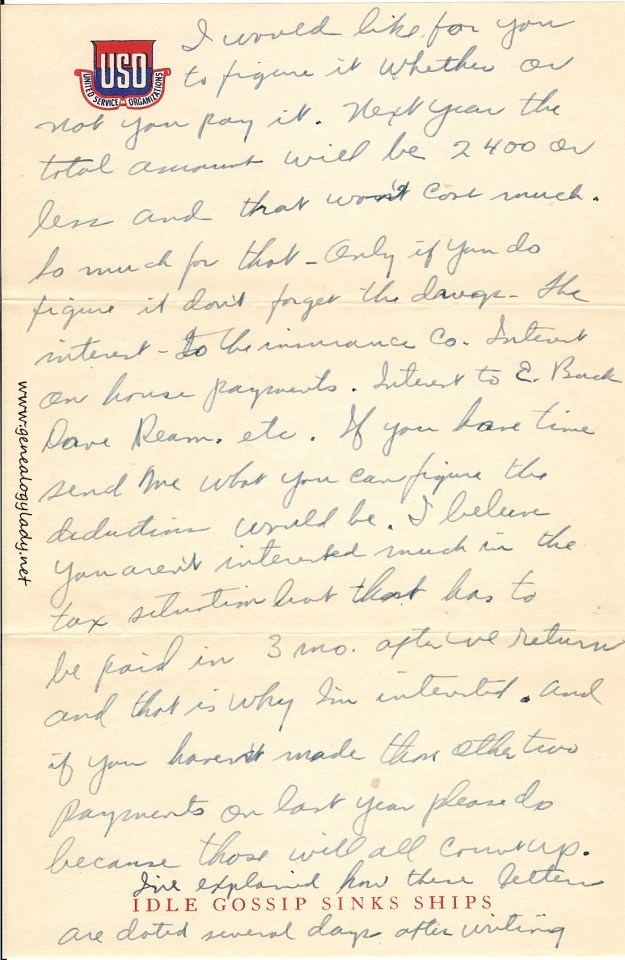 USO
UNITED SERVICE ORGANIZATIONS
I would like for you
to figure it whether or
not you pay it. Next year the
total amount will be 2400 or
less and that won't cost much.
So much for that - Only if you do
figure it don't forget the - the
interest - to the insurance Co. Interest
on house payments. Interest to E. Buck
Dave Ream. etc. If you have time
send me what you can figure the
deductions would be. I believe
you aren't interested much in the
tax situation but that has to
be paid in 3 mo. after we return
and that is why I'm interested. And
if you haven't made those other two
payments on last year please do
because those will all count up.
I've explained how these letters
IDLE GOSSIP SINKS SHIPS
are dated several days after writing
www.genealogylady.net